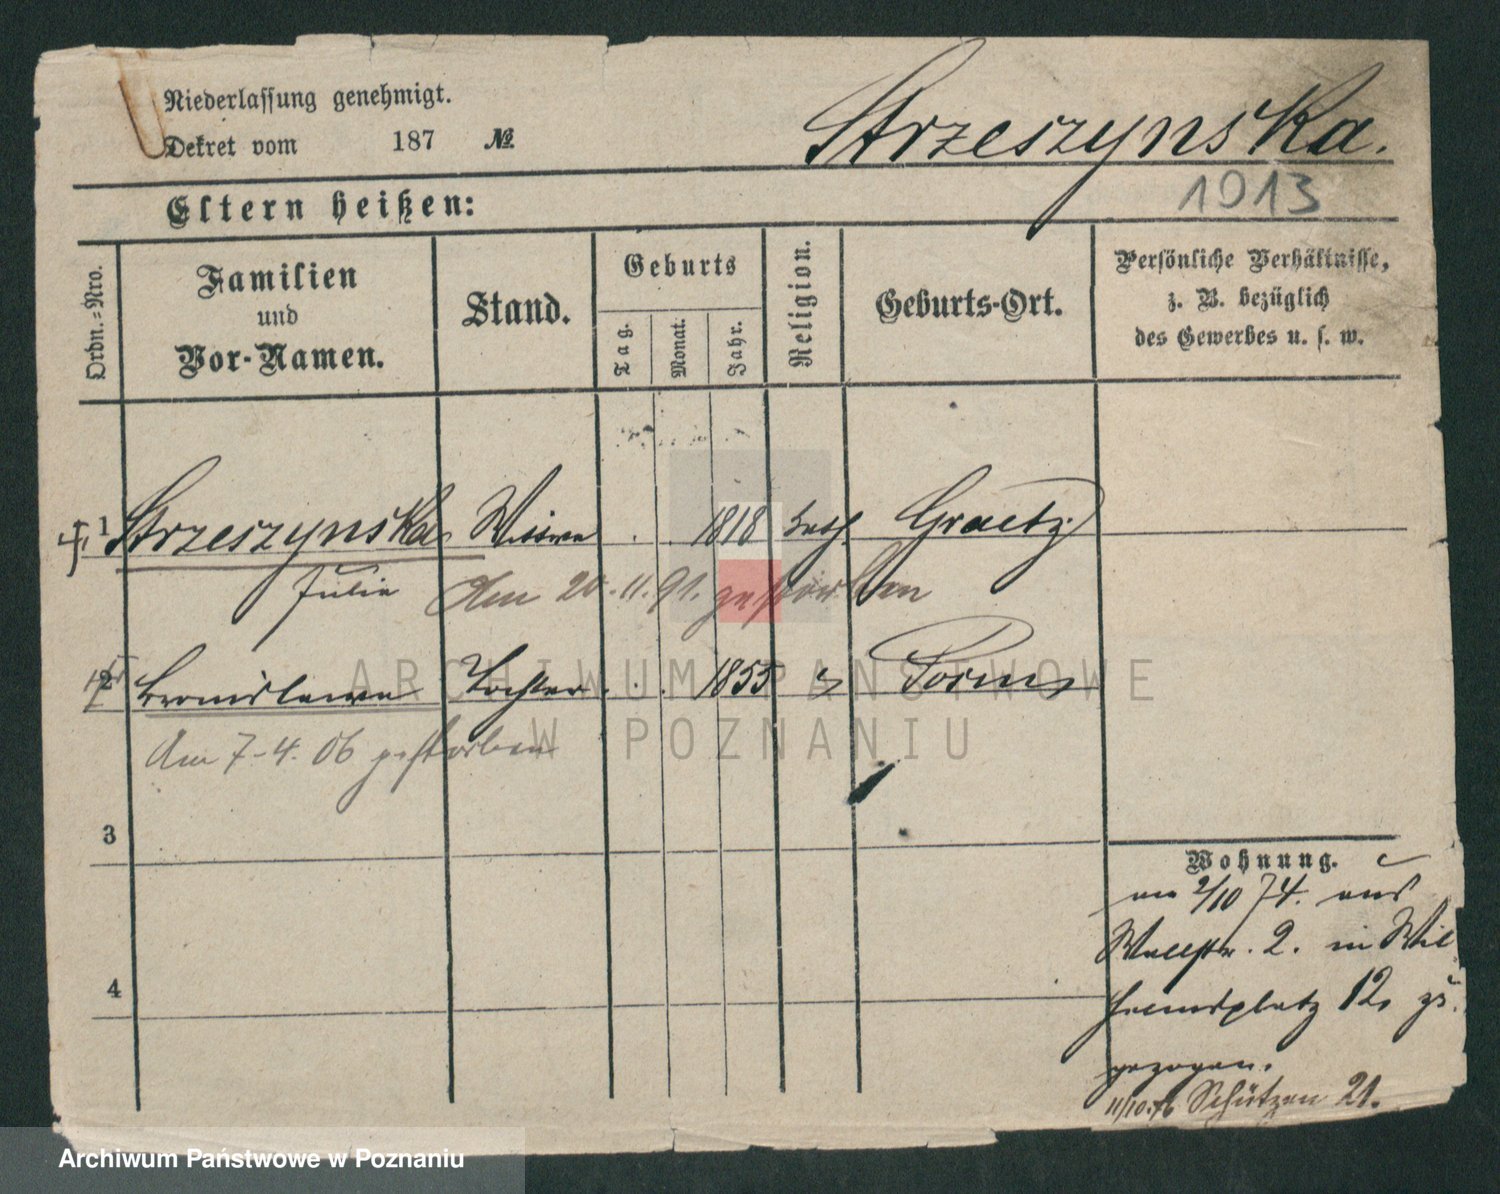 Niederlassung genehmigt.
Dekret vom 187 №
Strzeszynska.
1013
Eltern heißen:
Ordn.=Nro.
Familien
und
Vor-Namen.
Stand.
Geburts
Tag.
Monat.
Jahr.
Religion.
Geburts-Ort.
Persönliche Verhältnisse,
z. B. bezüglich
des Gewerbes u. s. w.
1 Strzeszynska Wittwe 1818 kath. Graetz
Julie Am 20.11.91. gestorben
2 Bronislawa Tochter 1855 Posen
Am 7-4. 06 gestorben
3
4
Wohnung.
am 2/10 74. aus
Wallstr. 2. in Wil
helmsplatz 12. zu
gezogen.
11/10.76 Schützen 21.
ARCHIWUM PAŃSTWOWE
W POZNANIU
Archiwum Państwowe w Poznaniu